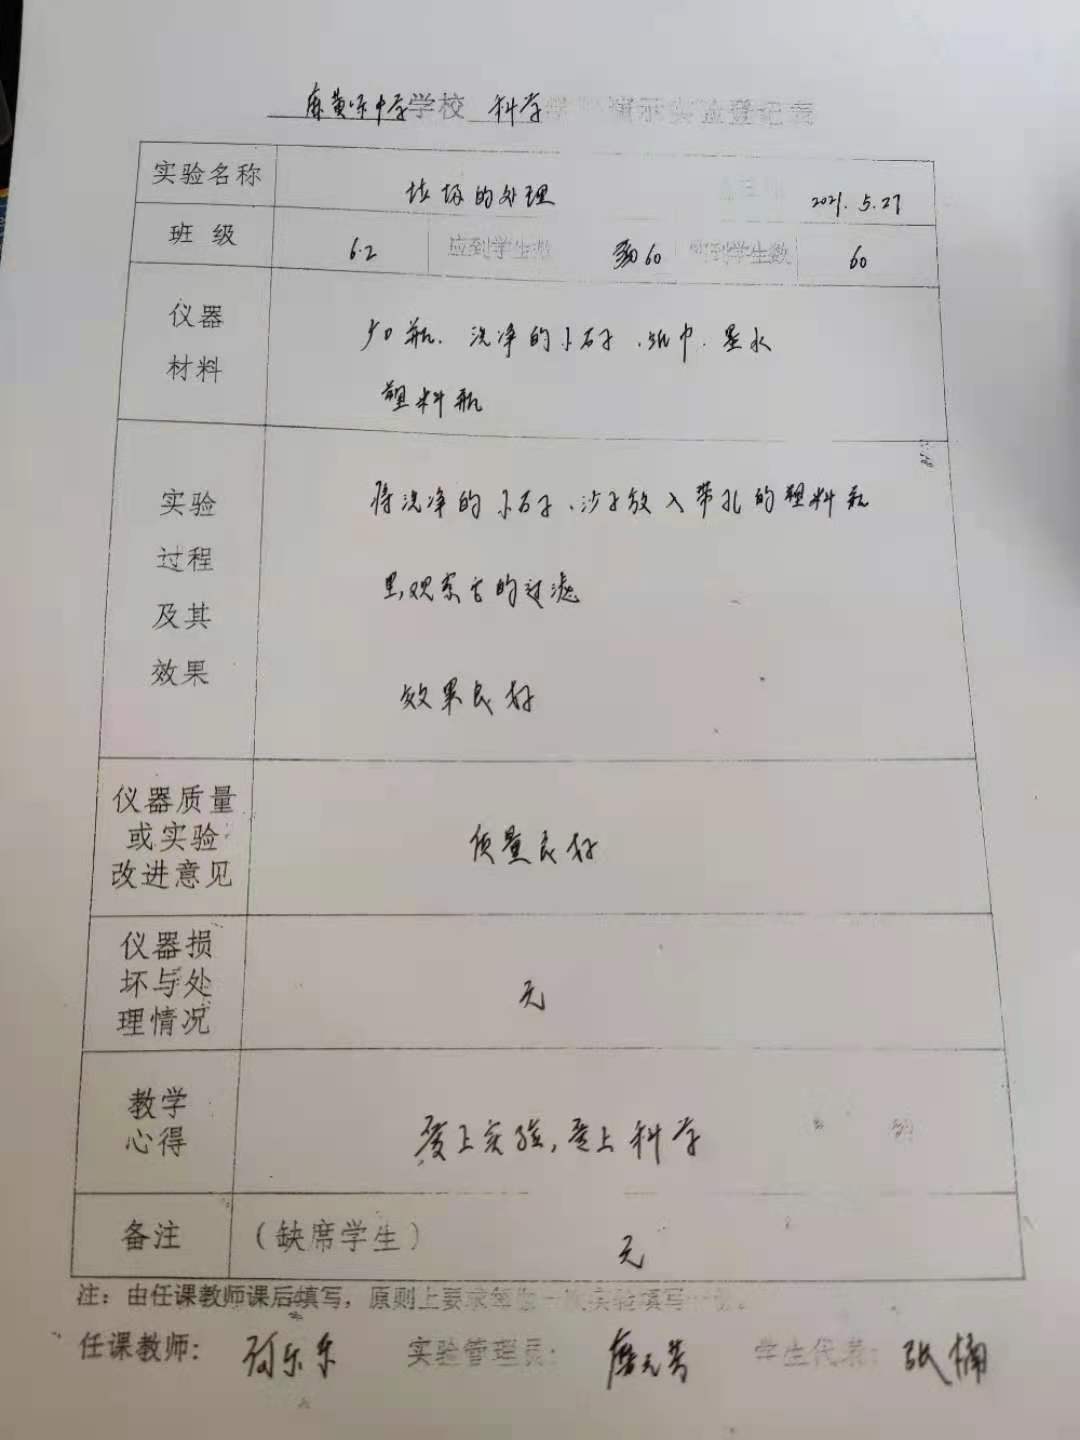 学校 科学 演示实验登记表
实验名称 垃圾的处理 2021. 5.27
班 级 6.2 应到学生数 60 实到学生数 60
仪器 材料
广口瓶、洗净的小石子、纸巾、墨水
塑料瓶
实验 过程 及其 效果
将洗净的小石子、沙子放入带孔的塑料瓶
里,观察它的过滤
效果良好
仪器质量
或实验
改进意见
质量良好
仪器损
坏与处
理情况
无
教学
心得
爱上实验,爱上科学
备注 (缺席学生) 无
注:由任课教师课后填写,原则上要求每做一次实验填写一份。
任课教师: 实验管理员: 学生代表: 张楠